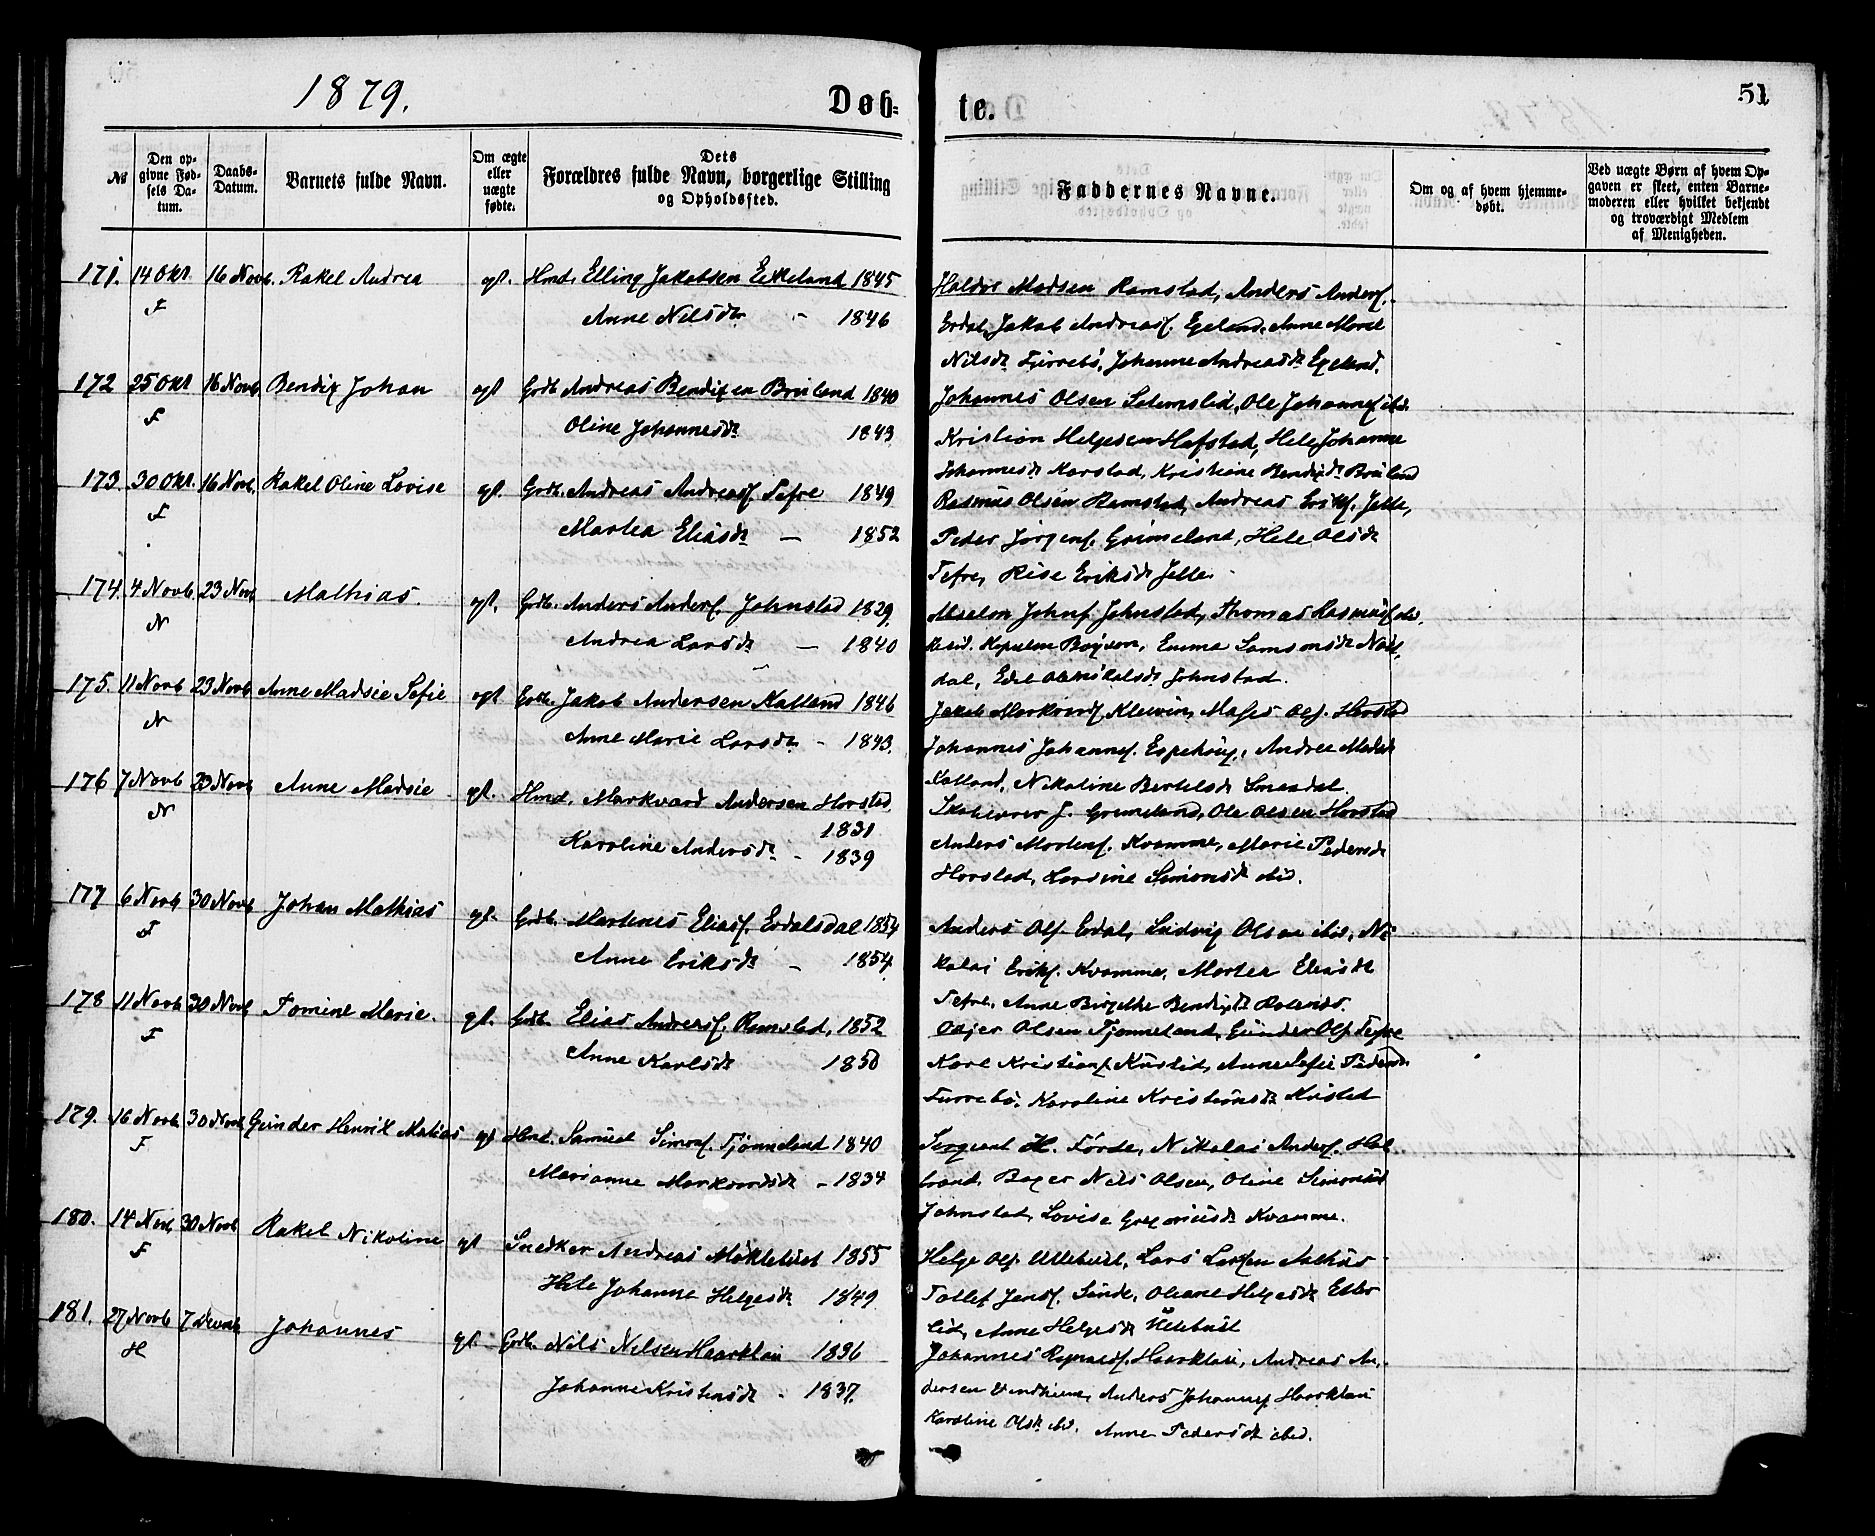 1879.
Døb-
te.
51
No
Den op-
givne Fød-
sels Da-
tum.
Daabs-
Datum.
Barnets fulde Navn.
Om ægte
eller
uægte
fødte.
Dets
Forældres fulde Navn, borgerlige Stilling
og Opholdssted.
Faddernes Navne.
Om og af hvem hjemme-
døbt.
Ved uægte Børn af hvem Op-
gaven er skeet, enten Barne-
moderen eller hvilket bekjendt
og troværdigt Medlem
af Menigheden.
171. 14 Okt. 16 Novb. Rakel Andrea ægt. Hmd. Elling Jakobsen Eikeland 1845
F Anne Nilsdr - 1846
Madsen Ramstad, Anders Anders.
Erdal, Jakob Andreas. Egeland, Anne Marie
Nilsdr Furrebø, Johanne Andreasdr Egeland.
172 25 Okt 16 Novb Bendix Johan ægt Grdb. Andreas Bendixen Bruland 1840
F Oline Johannesdr 1843
Johannes Olsen Ole ibid.
Kristian Helgesen Hafstad, Johanne
Johannesdr Karstad, Kristiane Bendixdr Bruland
173. 30 Okt. 16 Novb. Rakel Oline Lovise ægt. Grdb. Andreas Andreas. Tefre 1849
F Martea Eliasdr — 1852
Rasmus Olsen Ramstad, Andreas Eriks. Jelle,
Peder Jørgens. Grimeland, Olsdr
Tefre, Eriksdr Jelle.
174. 4 Novb. 23 Novb Mathias. ægt. Grdb. Anders Anders. Johnstad 1829
N Andrea Larsdr — 1840
Absalon Johns. Johnstad, Thomas Rasmus. ibd.
Emma Samsonsdr
dal, Johnstad.
175. 11 Novb 23 Novb Anne Madsie Sofie ægt Grdb. Jakob Andersen Kalland 1846
N Anne Marie Larsdr - 1843.
Jakob Markvards. Klevin, Ols. Horstad
Johannes Johannes. Espehoug, Andrea Madsdr
Kalland, Nikoline Bertelsdr
176 7 Novb 23 Novb Anne Madsie ægt. Hmd. Markvard Andersen Horstad
1831
N Karoline Andersdr - 1839
J. Grimeland, Ole Olsen Horstad
Anders Mortens. Kvamme, Marie Pedersdr
Horstad, Larsine Simonsdr ibid.
177 6 Novb 30 Novb Johan Mathias ægt. Grdb. Martenes Elias. Erdalsdal 1854
F Anne Eriksdr - 1854
Anders Ols. Erdal, Ludvig Olsen ibid, Ni-
kolai Eriks. Kvamme, Martea Eliasdr
Tefre, Anne Birgithe Bendixdr
178 11 Novb 30 Novb Tomine Marie. ægt. Grdb. Elias Andreas. Ramstad, 1852
F Anne Karlsdr 1850
Olsen Tjønneland, Gunder Ols. Tefre
Karl Kristians. Kusslid, Anne Sofie Pedersdr
Furrebø, Karoline Kristiansdr
179. 16 Novb. 30 Novb Gunder Henrik Matias ægt Hmd. Samuel Simons. Tjønneland 1840
F Marianne Markvardsdr - 1834
Sergeant H. Førde, Nikolai Anders. Hal-
brand, Bager Nils Olsen, Oline Simonsdr
Johnstad, Lovise Gregoriusdr Kvamme.
180. 14 Nov. 30 Novb Rakel Nikoline ægt Snedker Andreas Møklebust 1855
F Johanne Helgesdr 1849
Helge Ols. Ullebust, Lars Larsen
Tollef Jens. Sunde, Oliane Helgesdr
Anne Helgesdr
181. 27 Novb 7 Decemb Johannes ægt. Grdb. Nils Nilsen Haarklau 1836
H Johanne Kristensdr - 1837.
Johannes Haarklau, Andreas An-
dersen Vindheim, Anders Johannes. Haarklau
Karoline Olsdr ibd. Anne Pedersdr ibid.